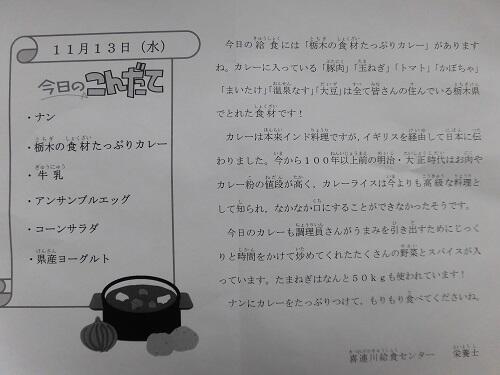 11月13日（水）
今日のこんだて
・ナン
・栃木の食材たっぷりカレー
・牛乳
・アンサンブルエッグ
・コーンサラダ
・県産ヨーグルト
今日の給食には「栃木の食材たっぷりカレー」があります
ね。カレーに入っている「豚肉」「玉ねぎ」「トマト」「かぼちゃ」
「まいたけ」「温泉なす」「大豆」は全て皆さんの住んでいる栃木県
でとれた食材です！
カレーは本来インド料理ですが、イギリスを経由して日本に伝
わりました。今から100年以上前の明治・大正時代はお肉や
カレー粉の値段が高く、カレーライスは今よりも高級な料理と
して知られ、なかなか口にすることができなかったそうです。
今日のカレーも調理員さんがうまみを引き出すためにじっく
りと時間をかけて炒めてくれたたくさんの野菜とスパイスが入
っています。たまねぎはなんと50kgも使われています！
ナンにカレーをたっぷりつけて、もりもり食べてくださいね。
喜連川給食センター　栄養士